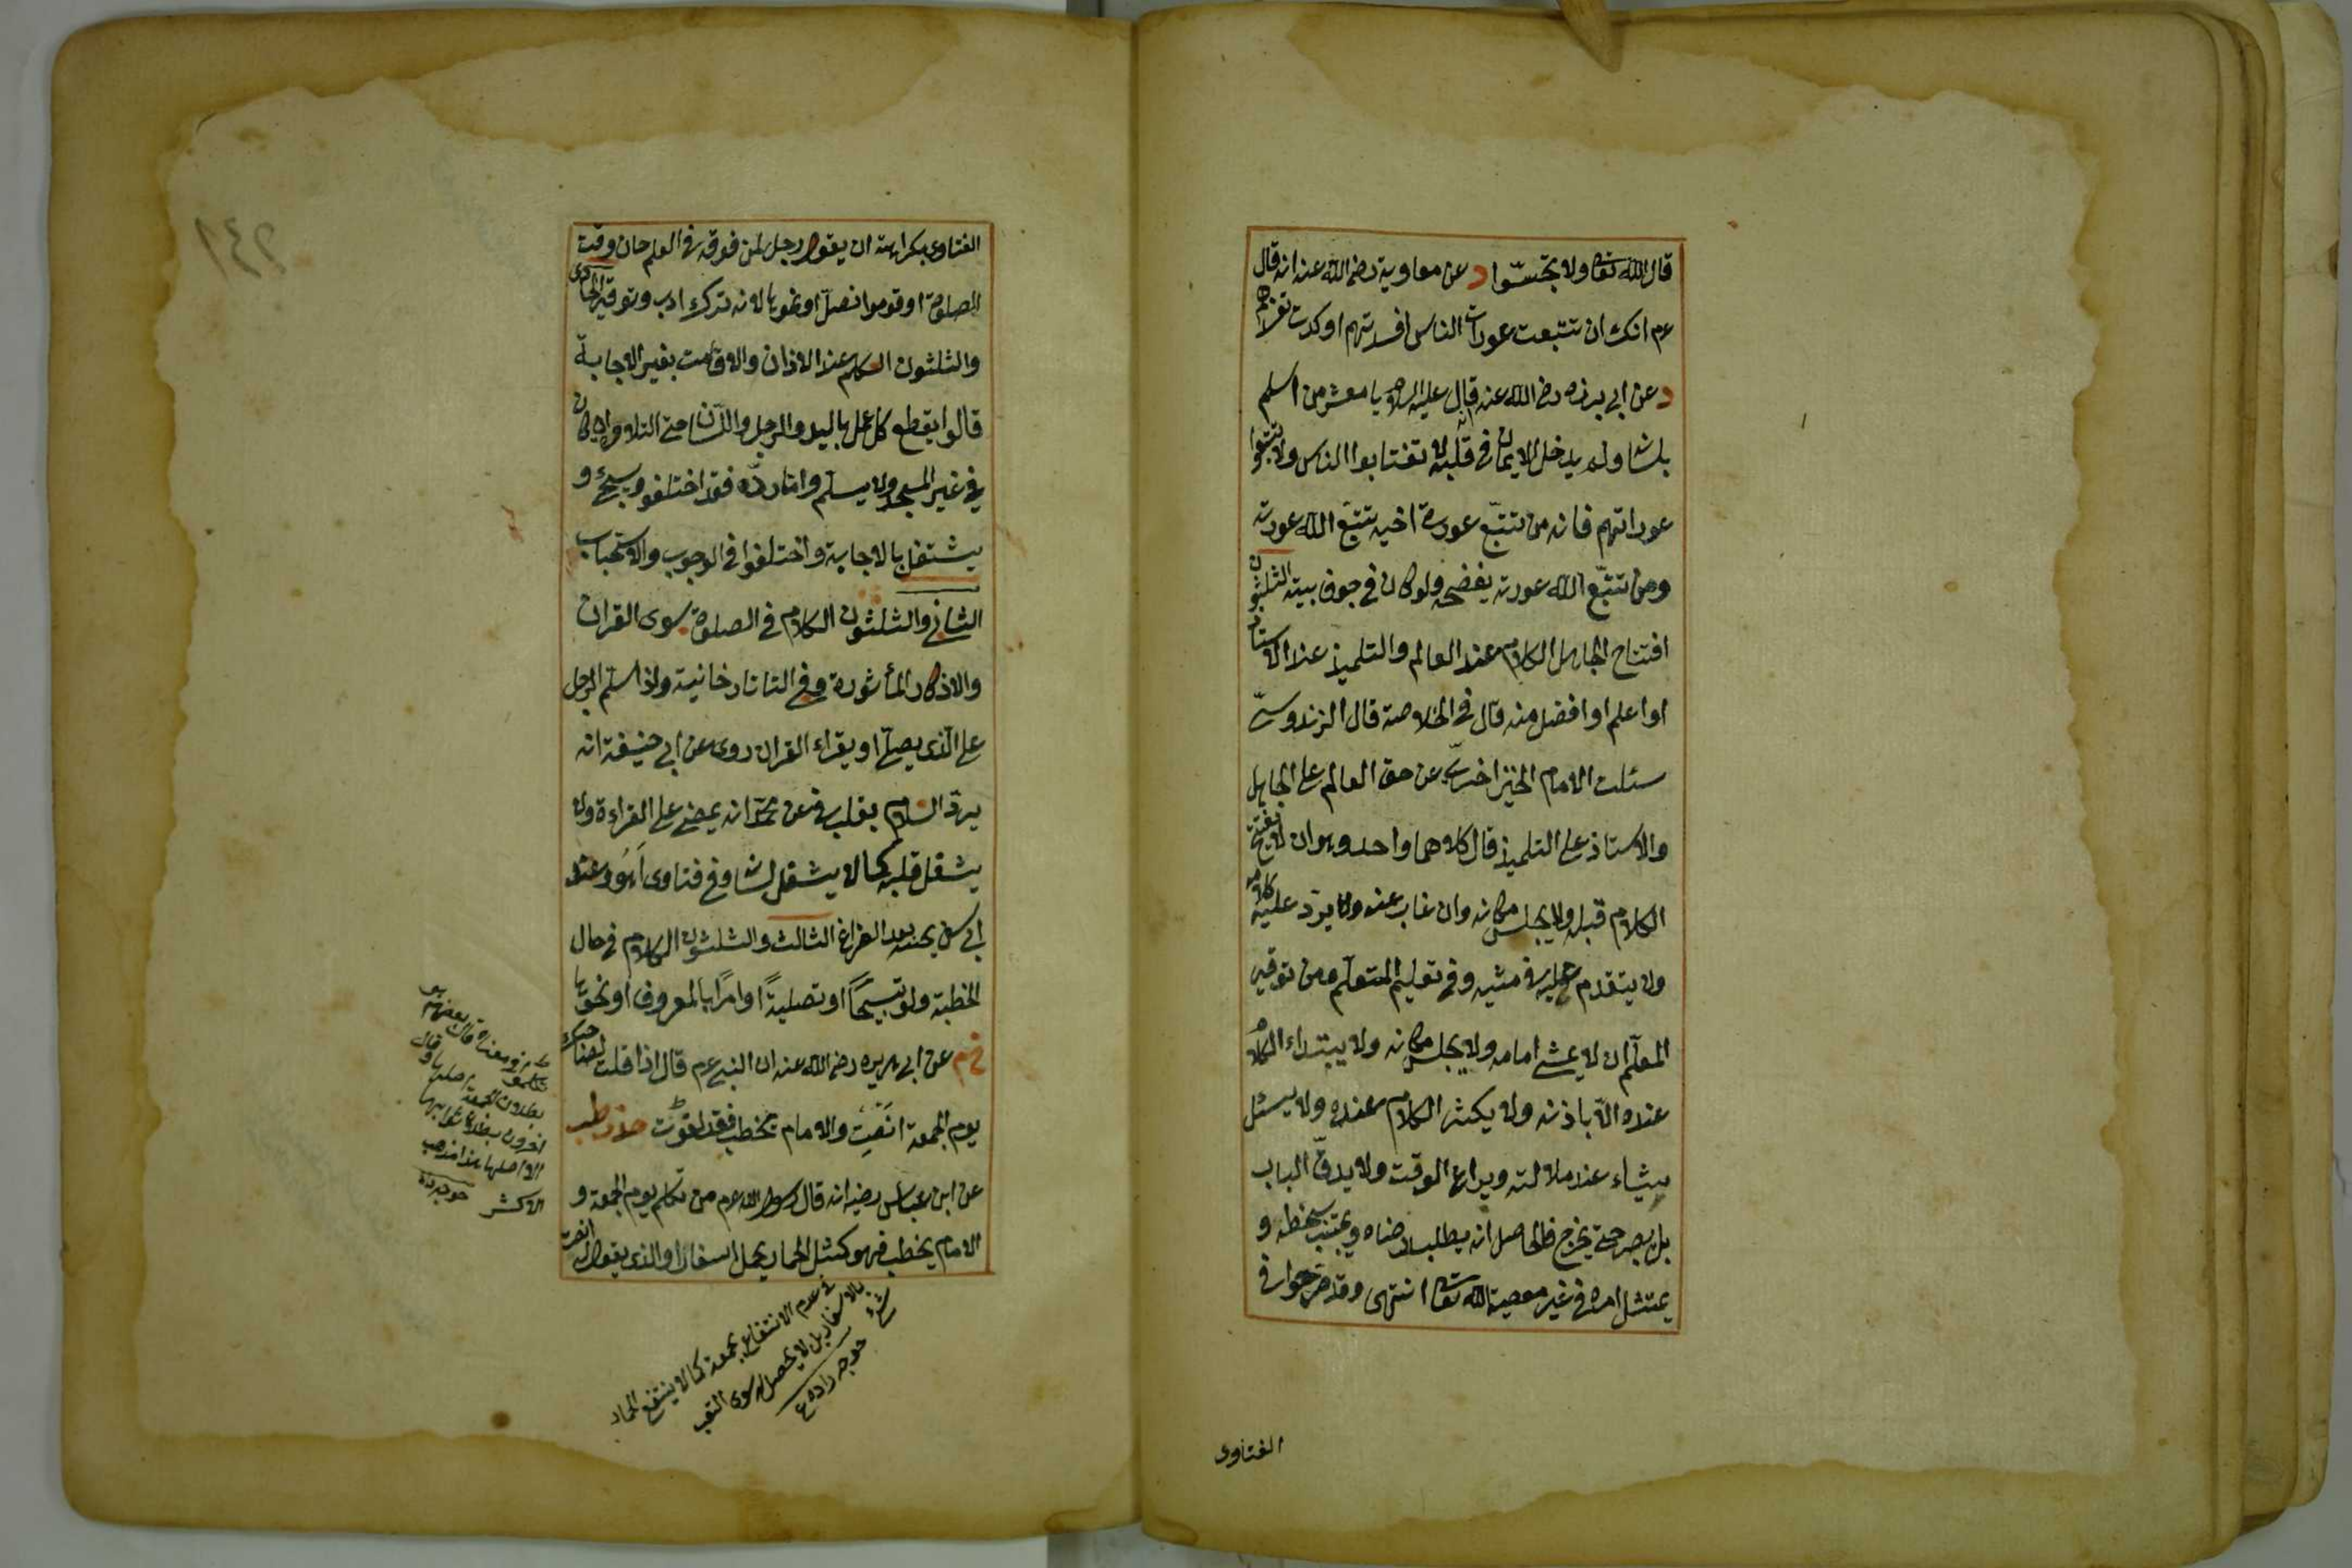 قال الله تعالى ولا تجسسوا د عن معاوية رضى الله عنه انه قال
عم انك ان تتبعت عورات الناس افسدتهم او كدت تفسدهم
د عن ابى برزه رضى الله عنه قال عليه السلام يا معشر من اسلم
بلسانه ولم يدخل الايمان فى قلبه لا تغتابوا الناس ولا تتبعوا
عوراتهم فانه من تتبّع عورة اخيه تتبّع الله عورته
ومن تتبّع الله عورته يفضحه ولو كان فى جوف بيته الثلثون
افتتاح الجاهل الكلام عند العالم والتلميذ عند الاستاذ
او اعلم او افضل منه قال فى الخلاصة قال الزندوستى
سئلت الامام الخيزاخزى عن حق العالم على الجاهل
والاستاذ على التلميذ قال كلاهما واحد وهو ان لا يفتتح
الكلام قبله ولا يجلس مكانه وان غاب عنه ولا يردّ عليه كلامه
ولا يتقدم عليه فى مشيه وفى تعليم المتعلّم ومن توقير
المعلّم ان لا يمشى امامه ولا يجلس مكانه ولا يبتداء الكلام
عنده الّا باذنه ولا يكثر الكلام عنده ولا يسئل
شيئاء عند ملالته ويراعى الوقت ولا يدقّ الباب
بل يصبر حتى يخرج فالحاصل انه يطلب رضاه ويجتنب سخطه و
يمتثل امره فى غير معصية الله تعالى انتهى وقد صرّحوا فى
الفتاوى
٢٤١
الفتاوى بكراهته ان يقول رجل لمن فوقه فى العلم حان وقت
الصلوة او قوموا نصلّ او نحوها لانه ترك ادب وتوقير الحادى
والثلثون الكلام عند الاذان والاقامت بغير الاجابة
قالوا يقطع كل عمل باليد والرجل واللسان حتى التلاوة ان كان
فى غير المسجد ولا يسلّم وامّا ردّه فقد اختلفوا وسيجئ و
يشتغل بالاجابة واختلفوا فى الوجوب والاستحباب
الثانى والثلثون الكلام فى الصلوة سوى القران
والاذكار المأثورة وفى التاتارخانية واذا سلّم الرجل
على الّذى يصلّى او يقراء القران روى عن ابى حنيفة انه
يردّ السلام بقلبه وعن محمّد انه يمضى على القراءة ولا
يشغل قلبه كما لا يشغل لسانه وفى فتاوى اَهُو وعند
ابى يوسف يجيبه بعد الفراغ الثالث والثلثون الكلام فى حال
الخطبة ولو تسبيحًا او تصليةً او امرًا بالمعروف او نحوها
خ م عن ابى هريره رضى الله عنه ان النبى عم قال اذا قلت لصاحبك
يوم الجمعة انَصِتْ والامام يخطب فقد لغوت حد ز طب
عن ابن عباس رضيه انه قال رسول الله عم من تكلم يوم الجمعة و
الامام يخطب فهو كمثل الحمار يحمل اسفارا والذى يقول له انصت
قال بعضهم
بطلان الجمعة
اخرون بطلان ثوابها
لا اصلها هذا مذهب
الاكثر خوجه زاده
فى عدم الانتفاع بجمعة كما لا ينتفع الحمار
بالاسفار بل لا يحصل له سوى التعب
خوجه زاده